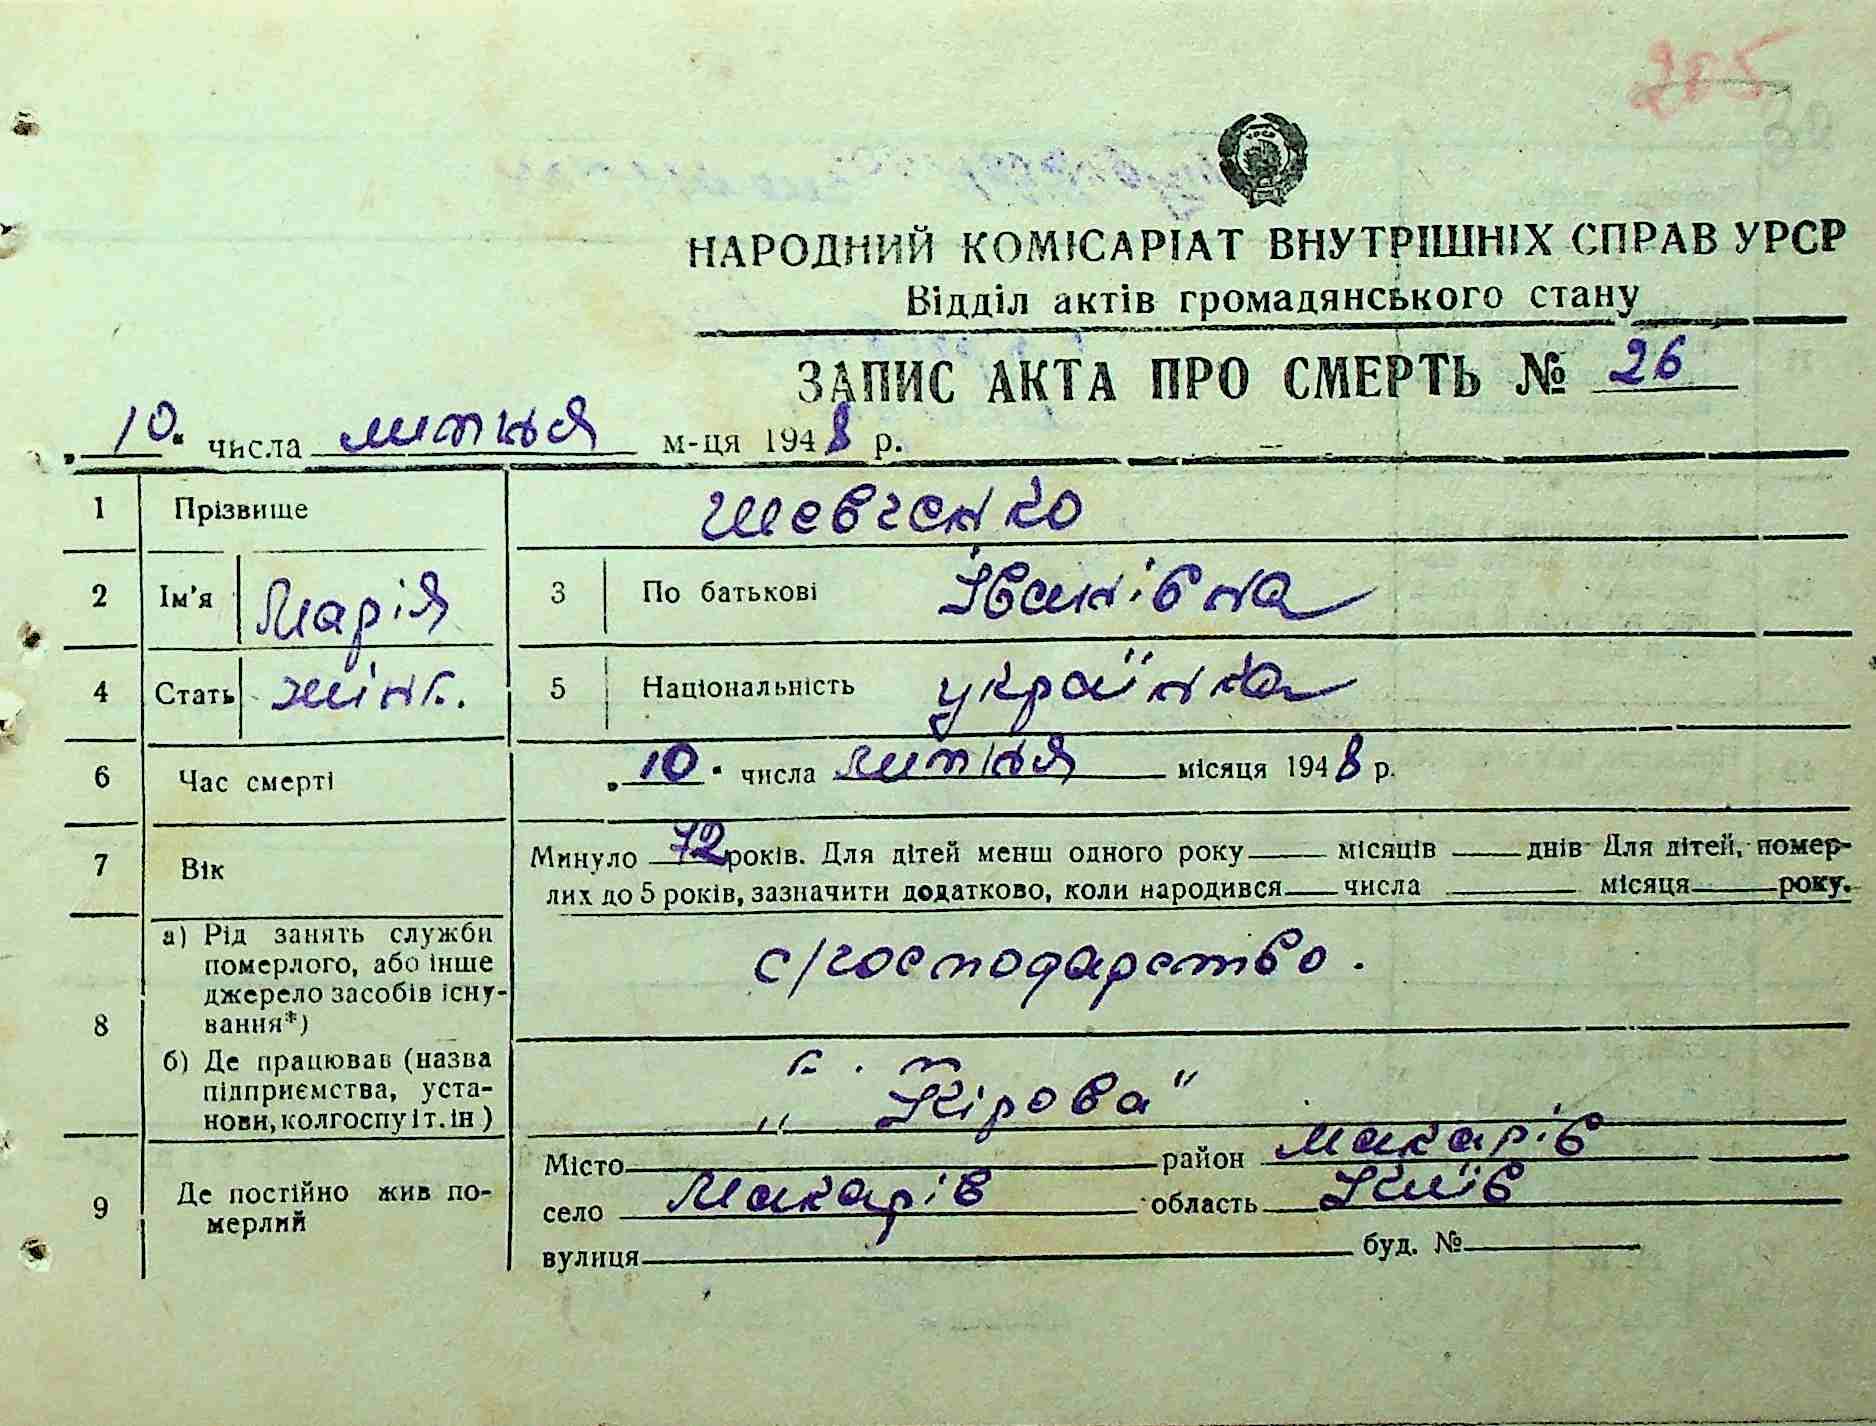 205
НАРОДНИЙ КОМІСАРІАТ ВНУТРІШНІХ СПРАВ УРСР
Відділ актів громадянського стану
ЗАПИС АКТА ПРО СМЕРТЬ № 26
„10" числа липня м-ця 1948 р.
1 Прізвище Шевченко
2 Ім'я Марія 3 По батькові Іванівна
4 Стать жінк. 5 Національність українка
6 Час смерті „10" числа липня місяця 1948 р.
7 Вік Минуло 72 років. Для дітей менш одного року місяців днів Для дітей, помер-
лих до 5 років, зазначити додатково, коли народився числа місяця року.
8 а) Рід занять служби
померлого, або інше
джерело засобів існу-
вання*)
с/господарство.
б) Де працював (назва
підприємства, уста-
нови, колгоспу і т. ін)
к. ім
„Кірова"
9 Де постійно жив по-
мерлий
Місто район Макарів
село Макарів область Київ
вулиця буд. №